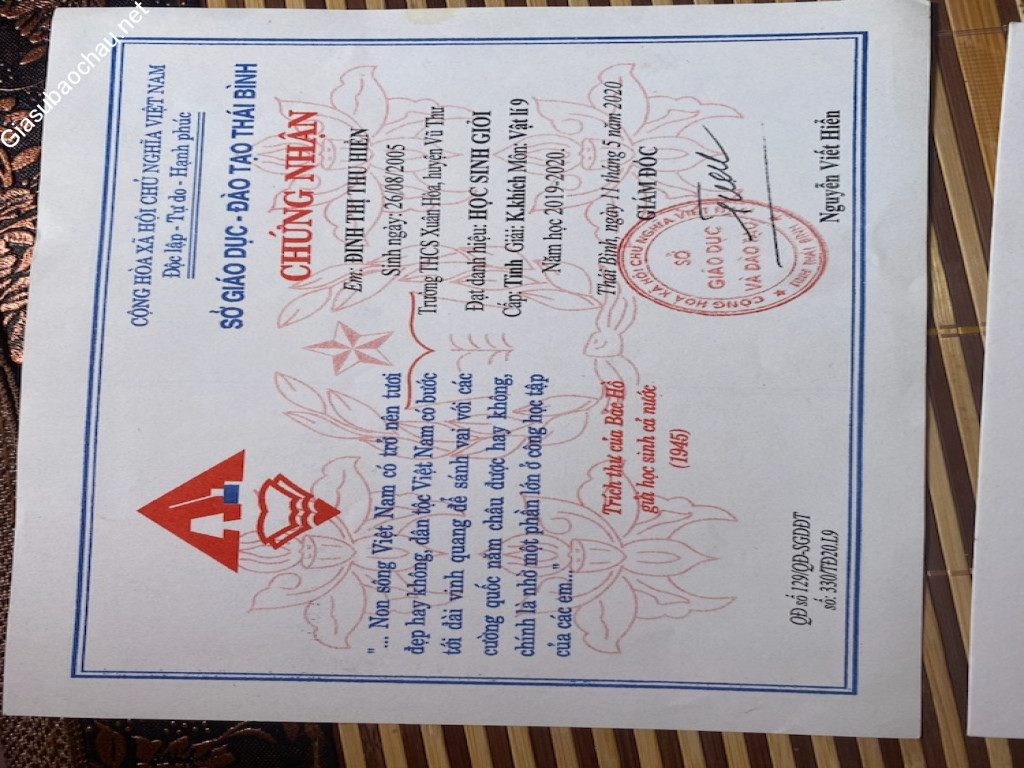 Giasubaochau.net
CỘNG HÒA XÃ HỘI CHỦ NGHĨA VIỆT NAM
Độc lập - Tự do - Hạnh phúc
SỞ GIÁO DỤC - ĐÀO TẠO THÁI BÌNH
CHỨNG NHẬN
Em: ĐINH THỊ THU HIỀN
Sinh ngày: 26/08/2005
Trường THCS Xuân Hòa, huyện Vũ Thư
Đạt danh hiệu: HỌC SINH GIỎI
Cấp: Tỉnh Giải: K.khích Môn: Vật lí 9
Năm học 2019-2020.
Thái Bình, ngày 11 tháng 5 năm 2020
GIÁM ĐỐC
CỘNG HÒA XÃ HỘI CHỦ NGHĨA VIỆT
SỞ
GIÁO DỤC
VÀ ĐÀO TẠO
TỈNH THÁI BÌNH
Nguyễn Viết Hiển
"... Non sông Việt Nam có trở nên tươi
đẹp hay không, dân tộc Việt Nam có bước
tới đài vinh quang để sánh vai với các
cường quốc năm châu được hay không,
chính là nhờ một phần lớn ở công học tập
của các em..."
Trích thư của Bác Hồ
gửi học sinh cả nước
(1945)
QĐ số 129/QĐ-SGDĐT
số: 330/TĐ20.L9